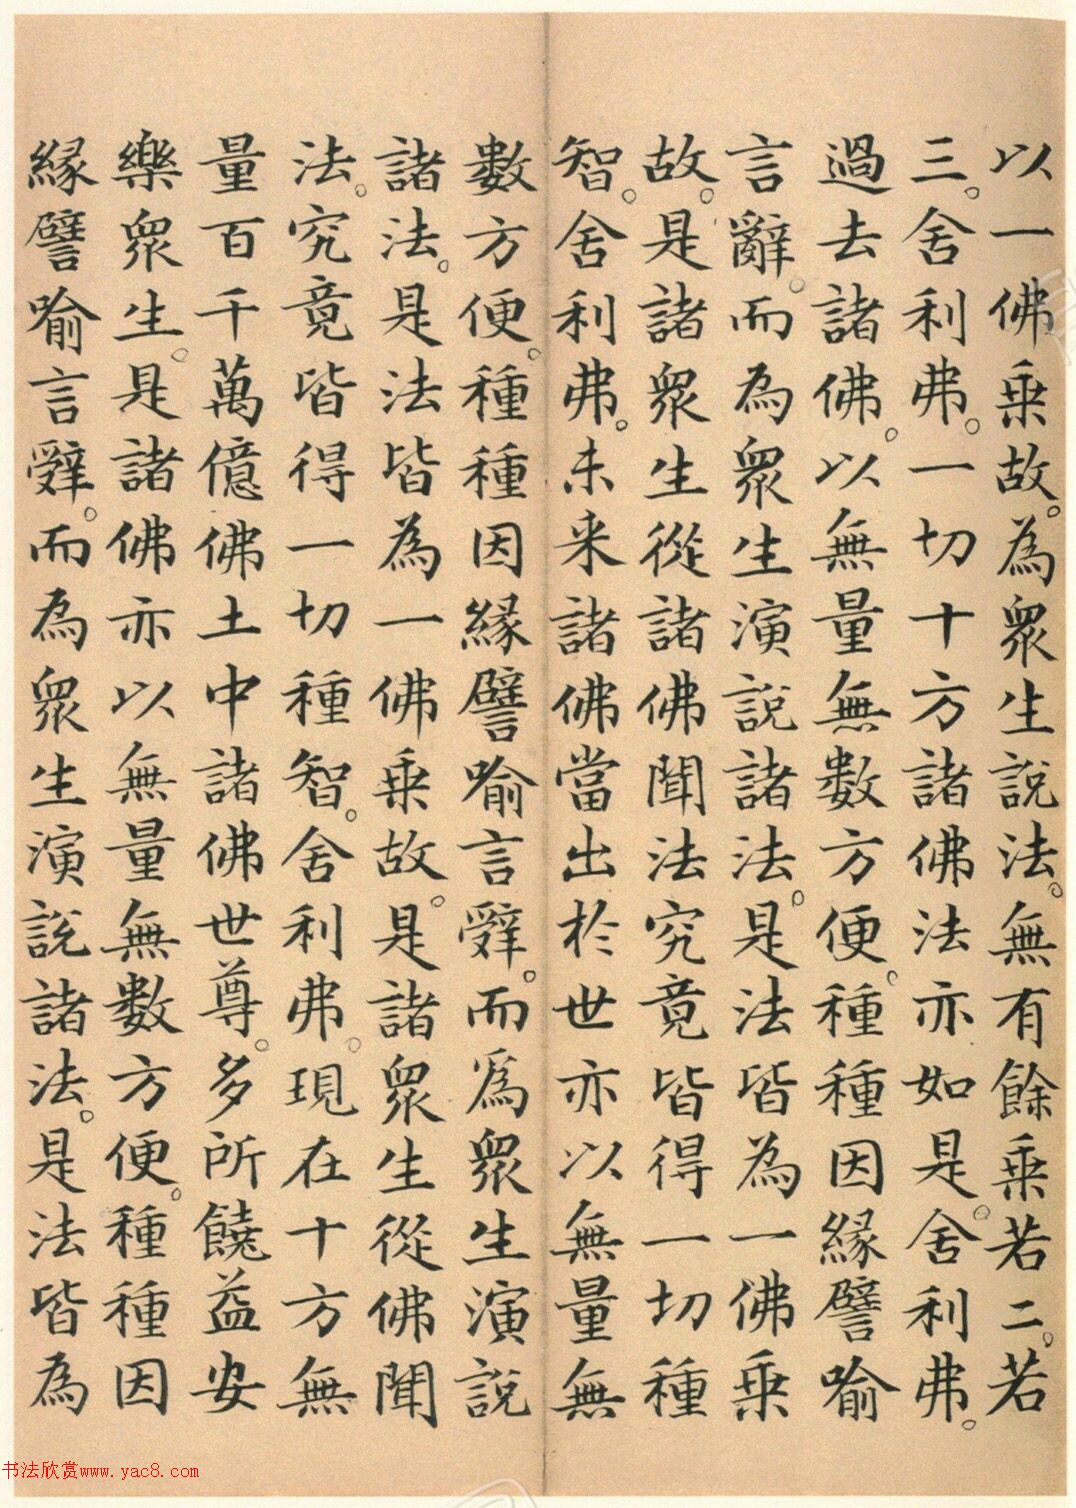 以一佛乗故。為眾生說法。無有餘乗若二。若
三。舍利弗。一切十方諸佛法亦如是。舍利弗。
過去諸佛。以無量無數方便。種種因緣譬喻
言辭。而為眾生演說諸法。是法皆為一佛乗
故。是諸眾生從諸佛聞法究竟皆得一切種
智。舍利弗。未来諸佛當出於世亦以無量無
數方便。種種因緣譬喻言辭。而為眾生演說
諸法。是法皆為一佛乗故。是諸眾生從佛聞
法。究竟皆得一切種智。舍利弗。現在十方無
量百千萬億佛土中諸佛世尊。多所饒益安
樂眾生。是諸佛亦以無量無數方便。種種因
緣譬喻言辭。而為眾生演說諸法。是法皆為
书法欣赏www.yac8.com